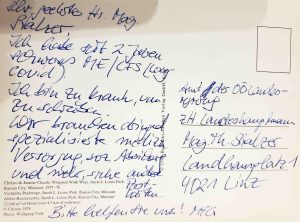 Sehr geehrter Hr. Mag.
Stelzer,
Ich habe seit 2 Jahren
schweres ME/CFS (Long
Covid)
Ich bin zu krank, um
zu schreiben
Wir brauchen dringend
spezialisierte medizin.
Versorgung, soz. Absicherung
und mehr, siehe andere
Postkarten.
Bitte helfen Sie uns! MfG
Christo & Jeanne-Claude, Wrapped Walk Ways, Jacob L. Loose Park,
Kansas City, Missouri, 1977-78
Verhüllte Parkwege, Jacob L. Loose Park, Kansas City, Missouri
Kansas City, Missouri, 1977-78
Photo: Wolfgang Volz
Amt der OÖ Landesre-
gierung
ZH Landeshauptmann
Mag. Th. Stelzer
Landhausplatz 1
4021 Linz